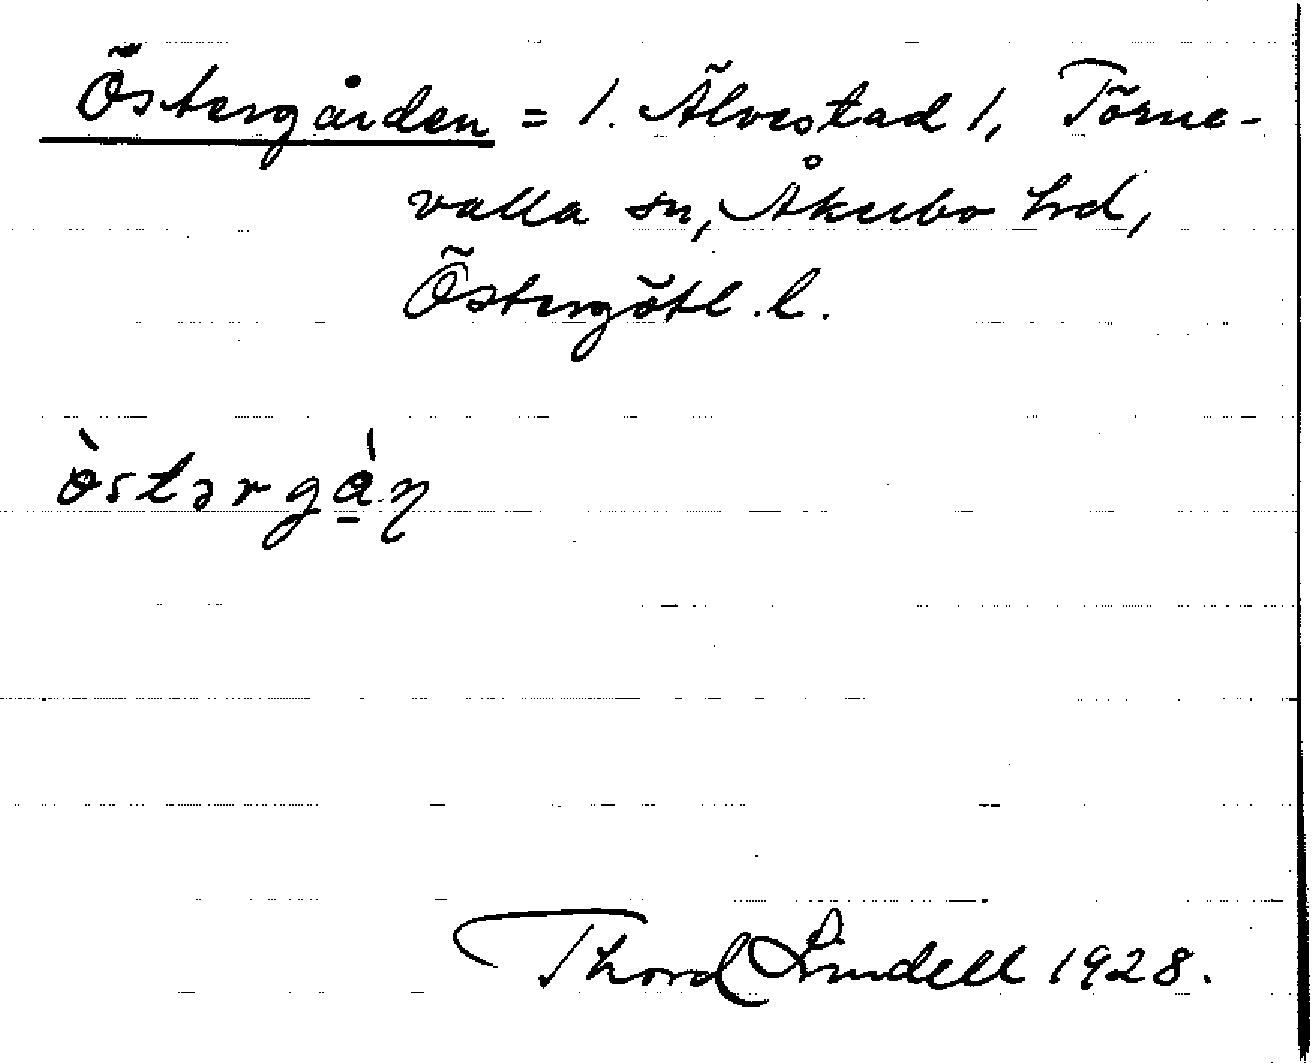 Östergården = 1. Älvestad 1, Törne-
valla sn, Åkerbo hd,
Östergötl. l.
östərgàn
Thord Lindell 1928.